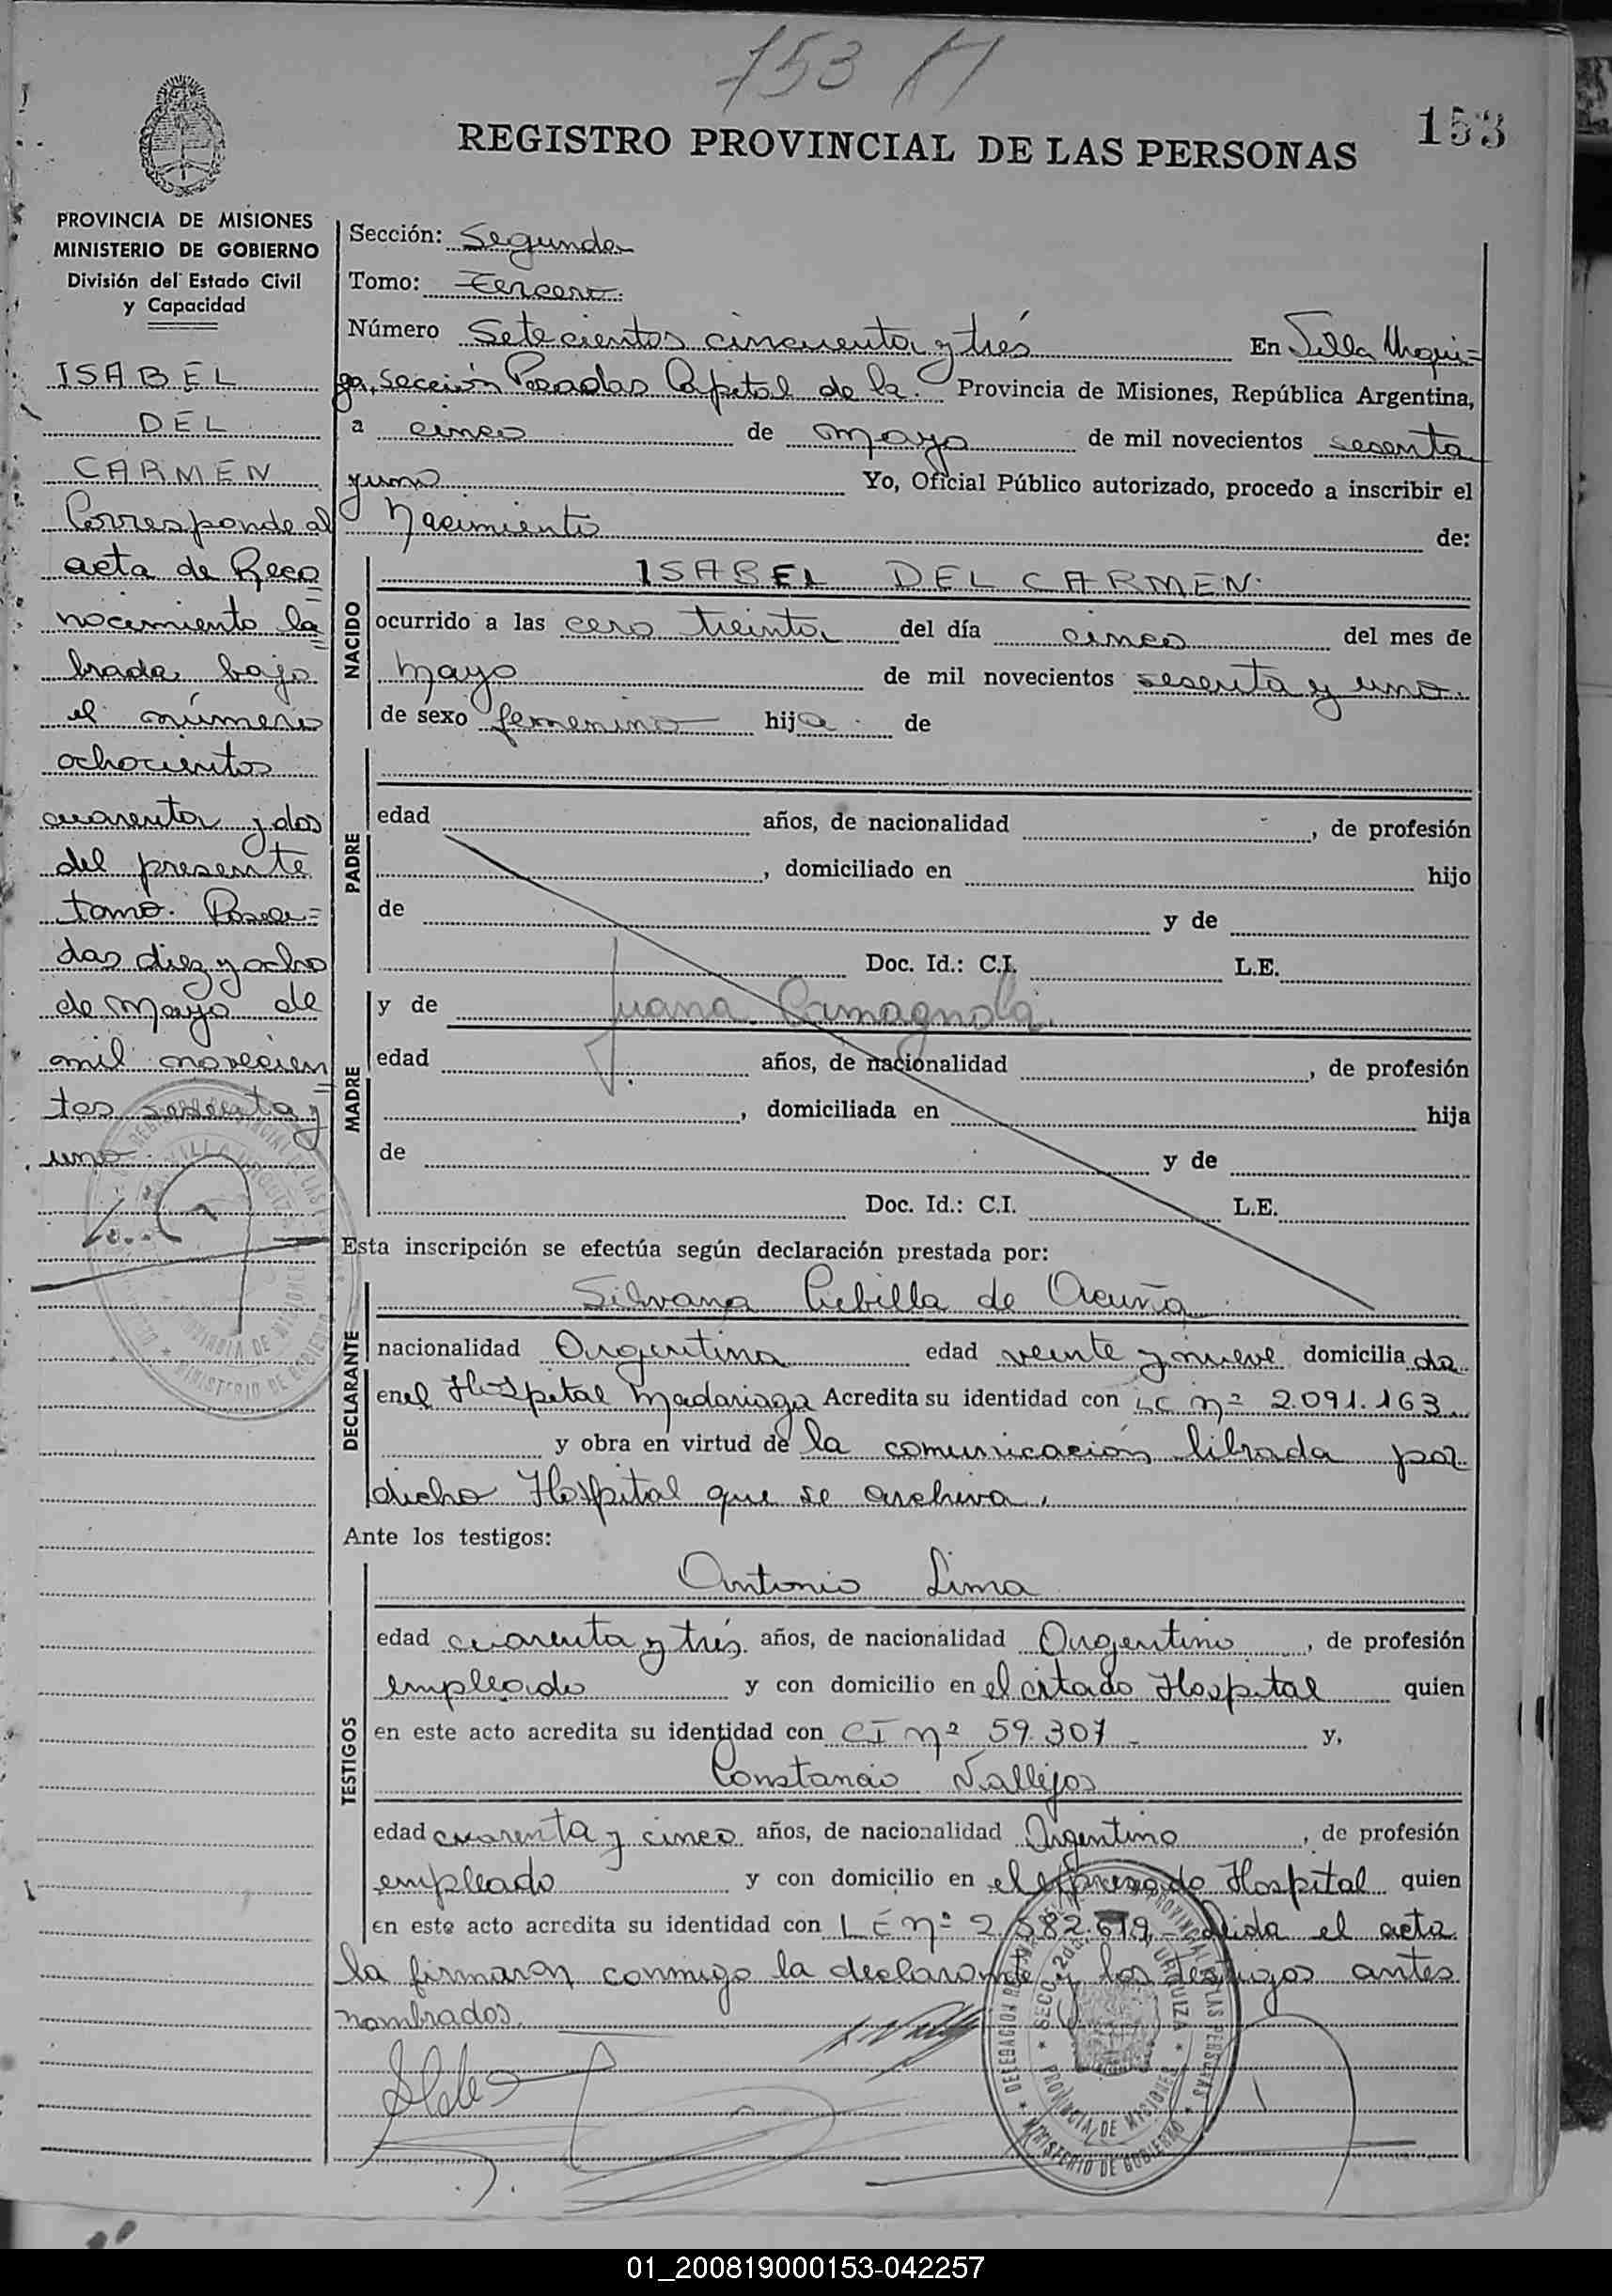 753
153
REGISTRO PROVINCIAL DE LAS PERSONAS
PROVINCIA DE MISIONES
MINISTERIO DE GOBIERNO
División del Estado Civil
y Capacidad
ISABEL
DEL
CARMEN
Corresponde al
acta de Reco
nocimiento la
brada bajo
el número
ochocientos
cuarenta y dos
del presente
tomo. Posa=
das diez y ocho
de Mayo de
mil novecien
tos sesenta y
uno
Sección: Segunda
Tomo: Tercero
Número Setecientos cincuenta y trés En Villa Urqui=
za, Sección Posadas Capital de la Provincia de Misiones, República Argentina,
a cinco de mayo de mil novecientos sesenta
y uno Yo, Oficial Público autorizado, procedo a inscribir el
Nacimiento de:
NACIDO
ISABEL DEL CARMEN
ocurrido a las cero treinta del día cinco del mes de
Mayo de mil novecientos sesenta y uno.
de sexo femenino hija de
PADRE
edad años, de nacionalidad , de profesión
, domiciliado en hijo
de y de
Doc. Id.: C.I. L.E.
MADRE
y de Juana Camagnola
edad años, de nacionalidad , de profesión
, domiciliada en hija
de y de
Doc. Id.: C.I. L.E.
Esta inscripción se efectúa según declaración prestada por:
DECLARANTE
Silvana Cubilla de Acuña
nacionalidad Argentina edad veinte y nueve domiciliada
en el Hospital Madariaga Acredita su identidad con LC nº 2.091.163
y obra en virtud de la comunicación librada por
dicho Hospital que se archiva.
Ante los testigos:
TESTIGOS
Antonio Lima
edad cuarenta y trés años, de nacionalidad Argentino , de profesión
empleado y con domicilio en el citado Hospital quien
en este acto acredita su identidad con CI nº 59.307 y,
Constancio Vallejos
edad cuarenta y cinco años, de nacionalidad Argentino , de profesión
empleado y con domicilio en el expresado Hospital quien
en este acto acredita su identidad con LE nº Leida el acta
la firmaron conmigo la declarante y los testigos antes
nombrados.
DELEGACION REGISTRO PROVINCIAL DE LAS PERSONAS
SECC. 2da. URQUIZA
PROVINCIA DE MISIONES
MINISTERIO DE GOBIERNO
01_200819000153-042257